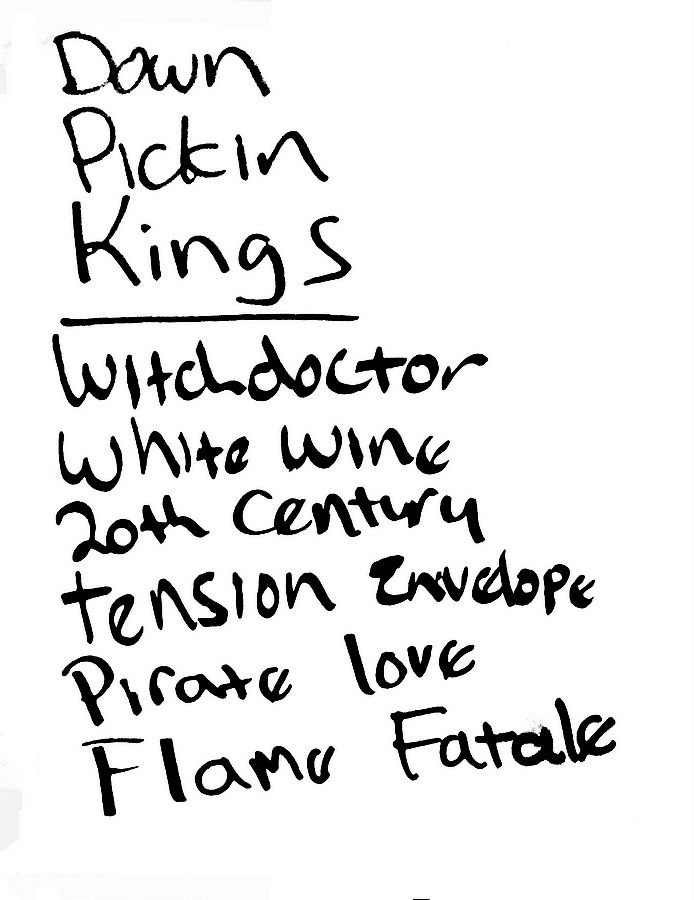 Down
Pickin
Kings
Witchdoctor
White Wine
20th Century
tension Envelope
Pirate love
Flame Fatale